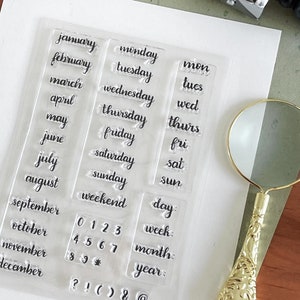 january
february
march
april
may
june
july
august
september
october
november
december
monday
tuesday
wednesday
thursday
friday
saturday
sunday
weekend
0 1 2 3
4 5 6 7
8 9 *
? ! ( ) & @
mon
tues
wed
thurs
fri
sat
sun
day
week
month
year